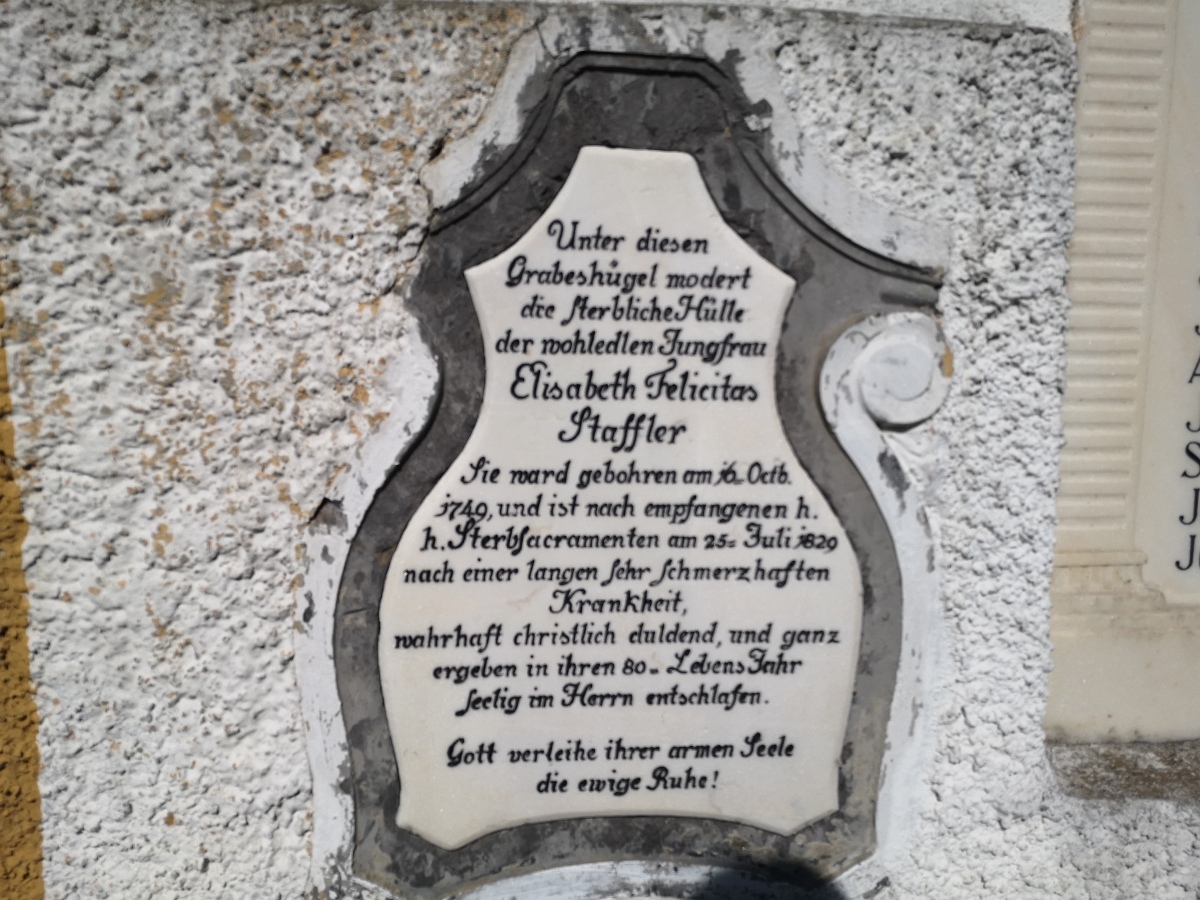 Unter diesen
Grabeshügel modert
die sterbliche Hülle
der wohledlen Jungfrau
Elisabeth Felicitas
Staffler
Sie ward gebohren am 16= Octb.
1749, und ist nach empfangenen h.
h. Sterbsacramenten am 25= Juli 1829
nach einer langen sehr schmerzhaften
Krankheit,
wahrhaft christlich duldend, und ganz
ergeben in ihren 80= LebensJahr
seelig im Herrn entschlafen.
Gott verleihe ihrer armen Seele
die ewige Ruhe!